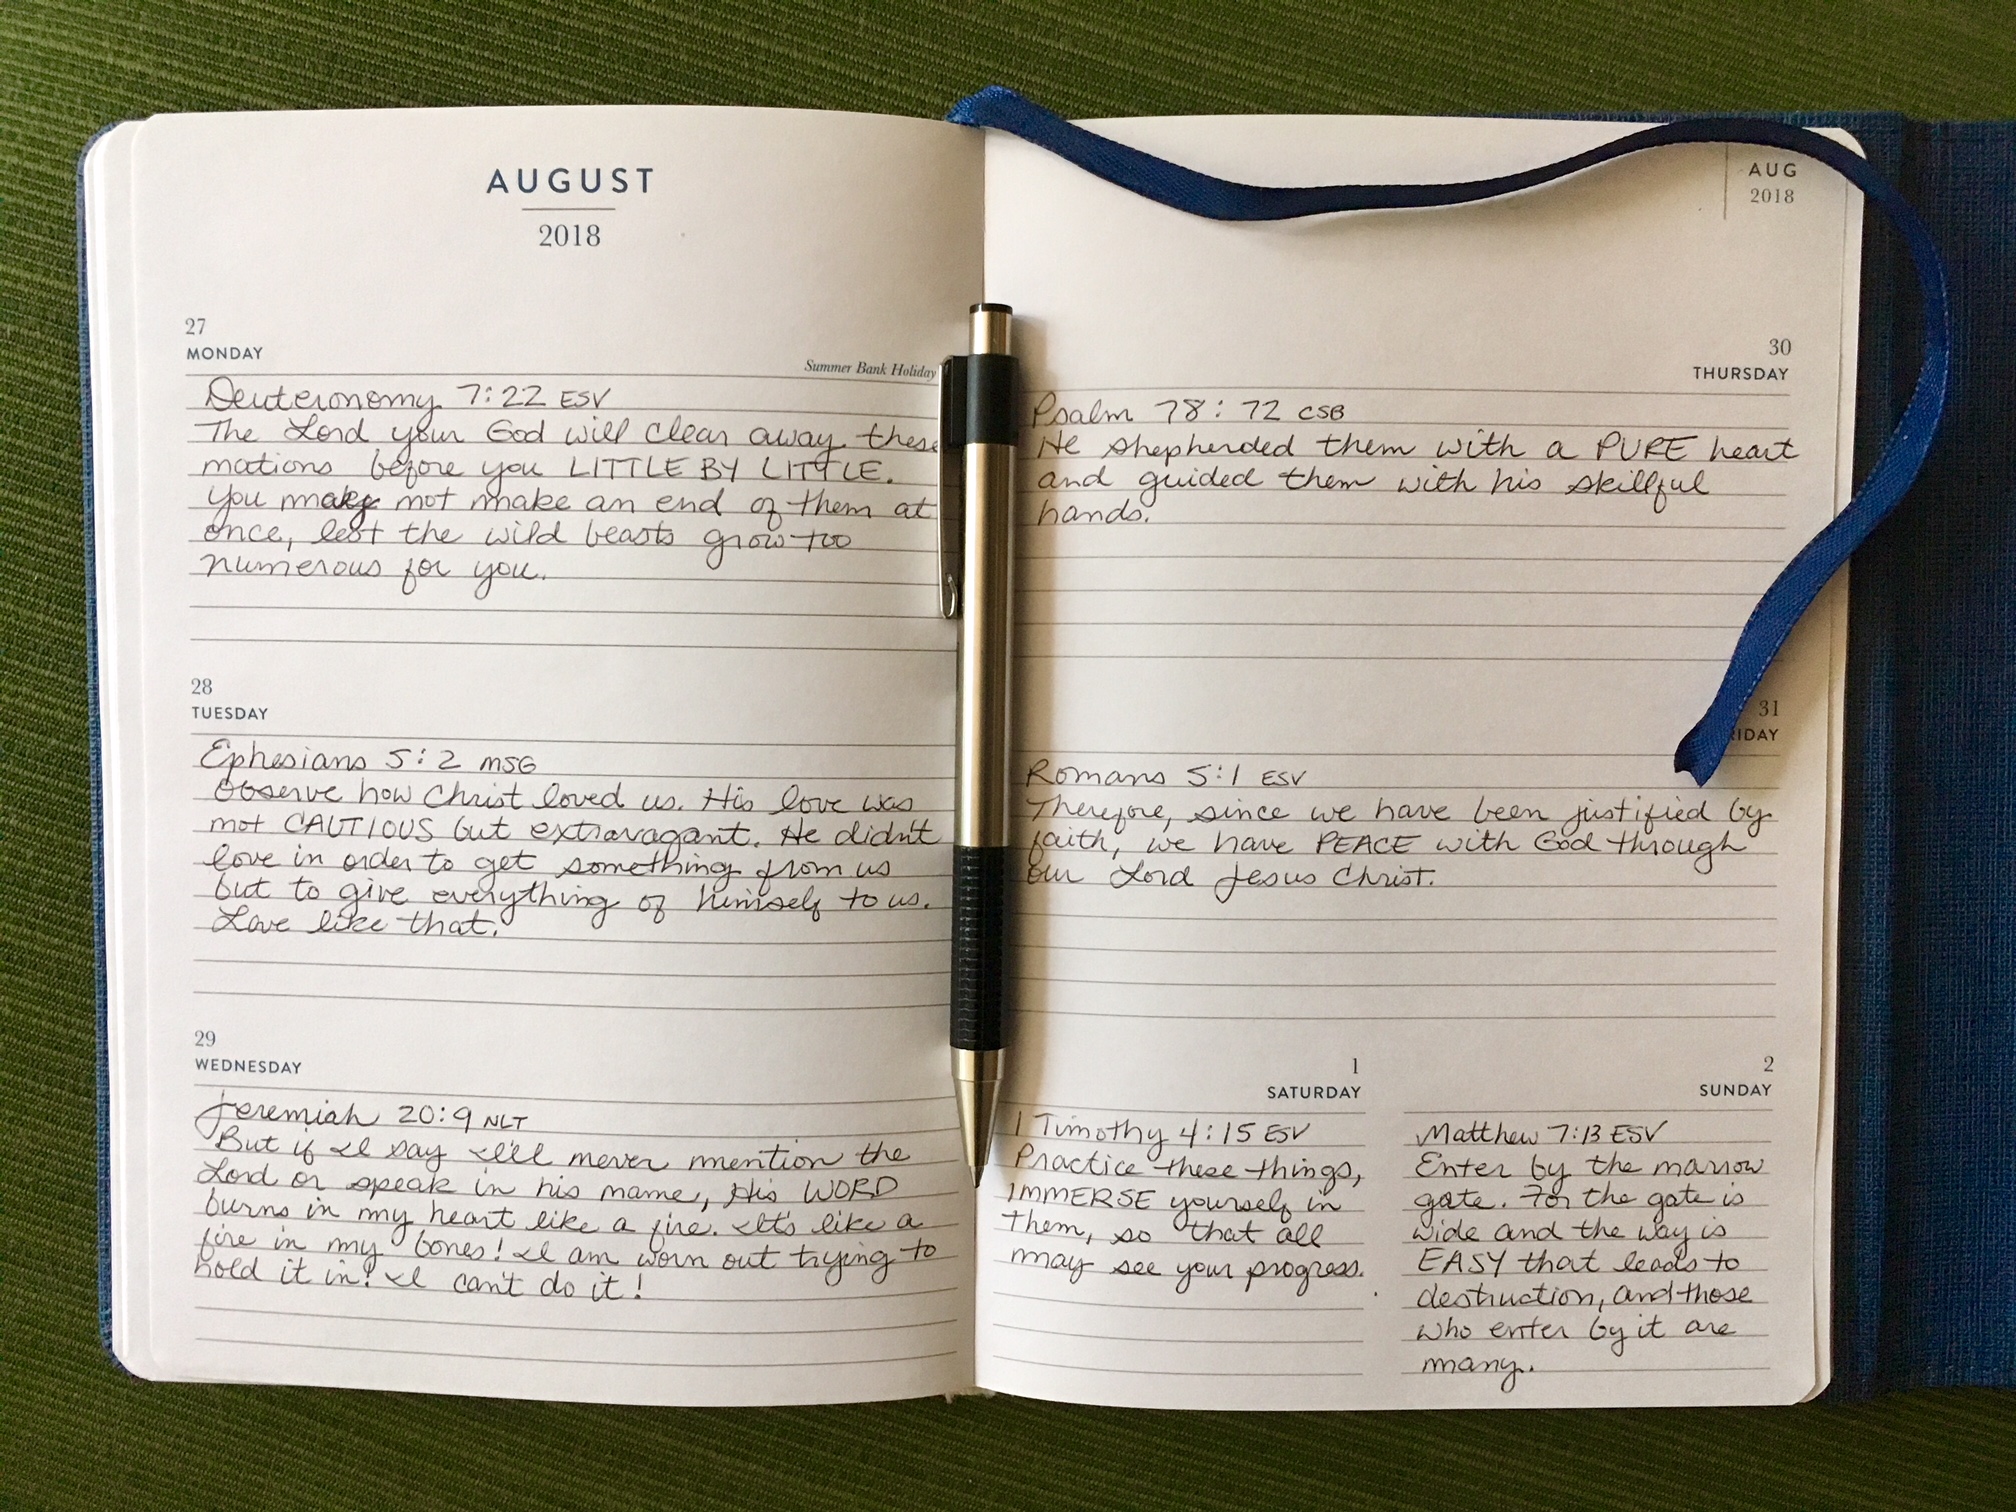 AUGUST
2018
27
MONDAY
Summer Bank Holiday
Deuteronomy 7:22 ESV
The Lord your God will clear away these
nations before you LITTLE BY LITTLE.
You may not make an end of them at
once, lest the wild beasts grow too
numerous for you.
28
TUESDAY
Ephesians 5:2 MSG
Observe how Christ loved us. His love was
not CAUTIOUS but extravagant. He didn't
love in order to get something from us
but to give everything of himself to us.
Love like that.
29
WEDNESDAY
Jeremiah 20:9 NLT
But if I say I'll never mention the
Lord or speak in his name, His WORD
burns in my heart like a fire. It's like a
fire in my bones! I am worn out trying to
hold it in! I can't do it!
AUG
2018
30
THURSDAY
Psalm 78:72 CSB
He shepherded them with a PURE heart
and guided them with his skillful
hands.
31
RIDAY
Romans 5:1 ESV
Therefore, since we have been justified by
faith, we have PEACE with God through
our Lord Jesus Christ.
1
SATURDAY
1 Timothy 4:15 ESV
Practice these things,
IMMERSE yourself in
them, so that all
may see your progress.
2
SUNDAY
Matthew 7:13 ESV
Enter by the narrow
gate. For the gate is
wide and the way is
EASY that leads to
destruction, and those
who enter by it are
many.